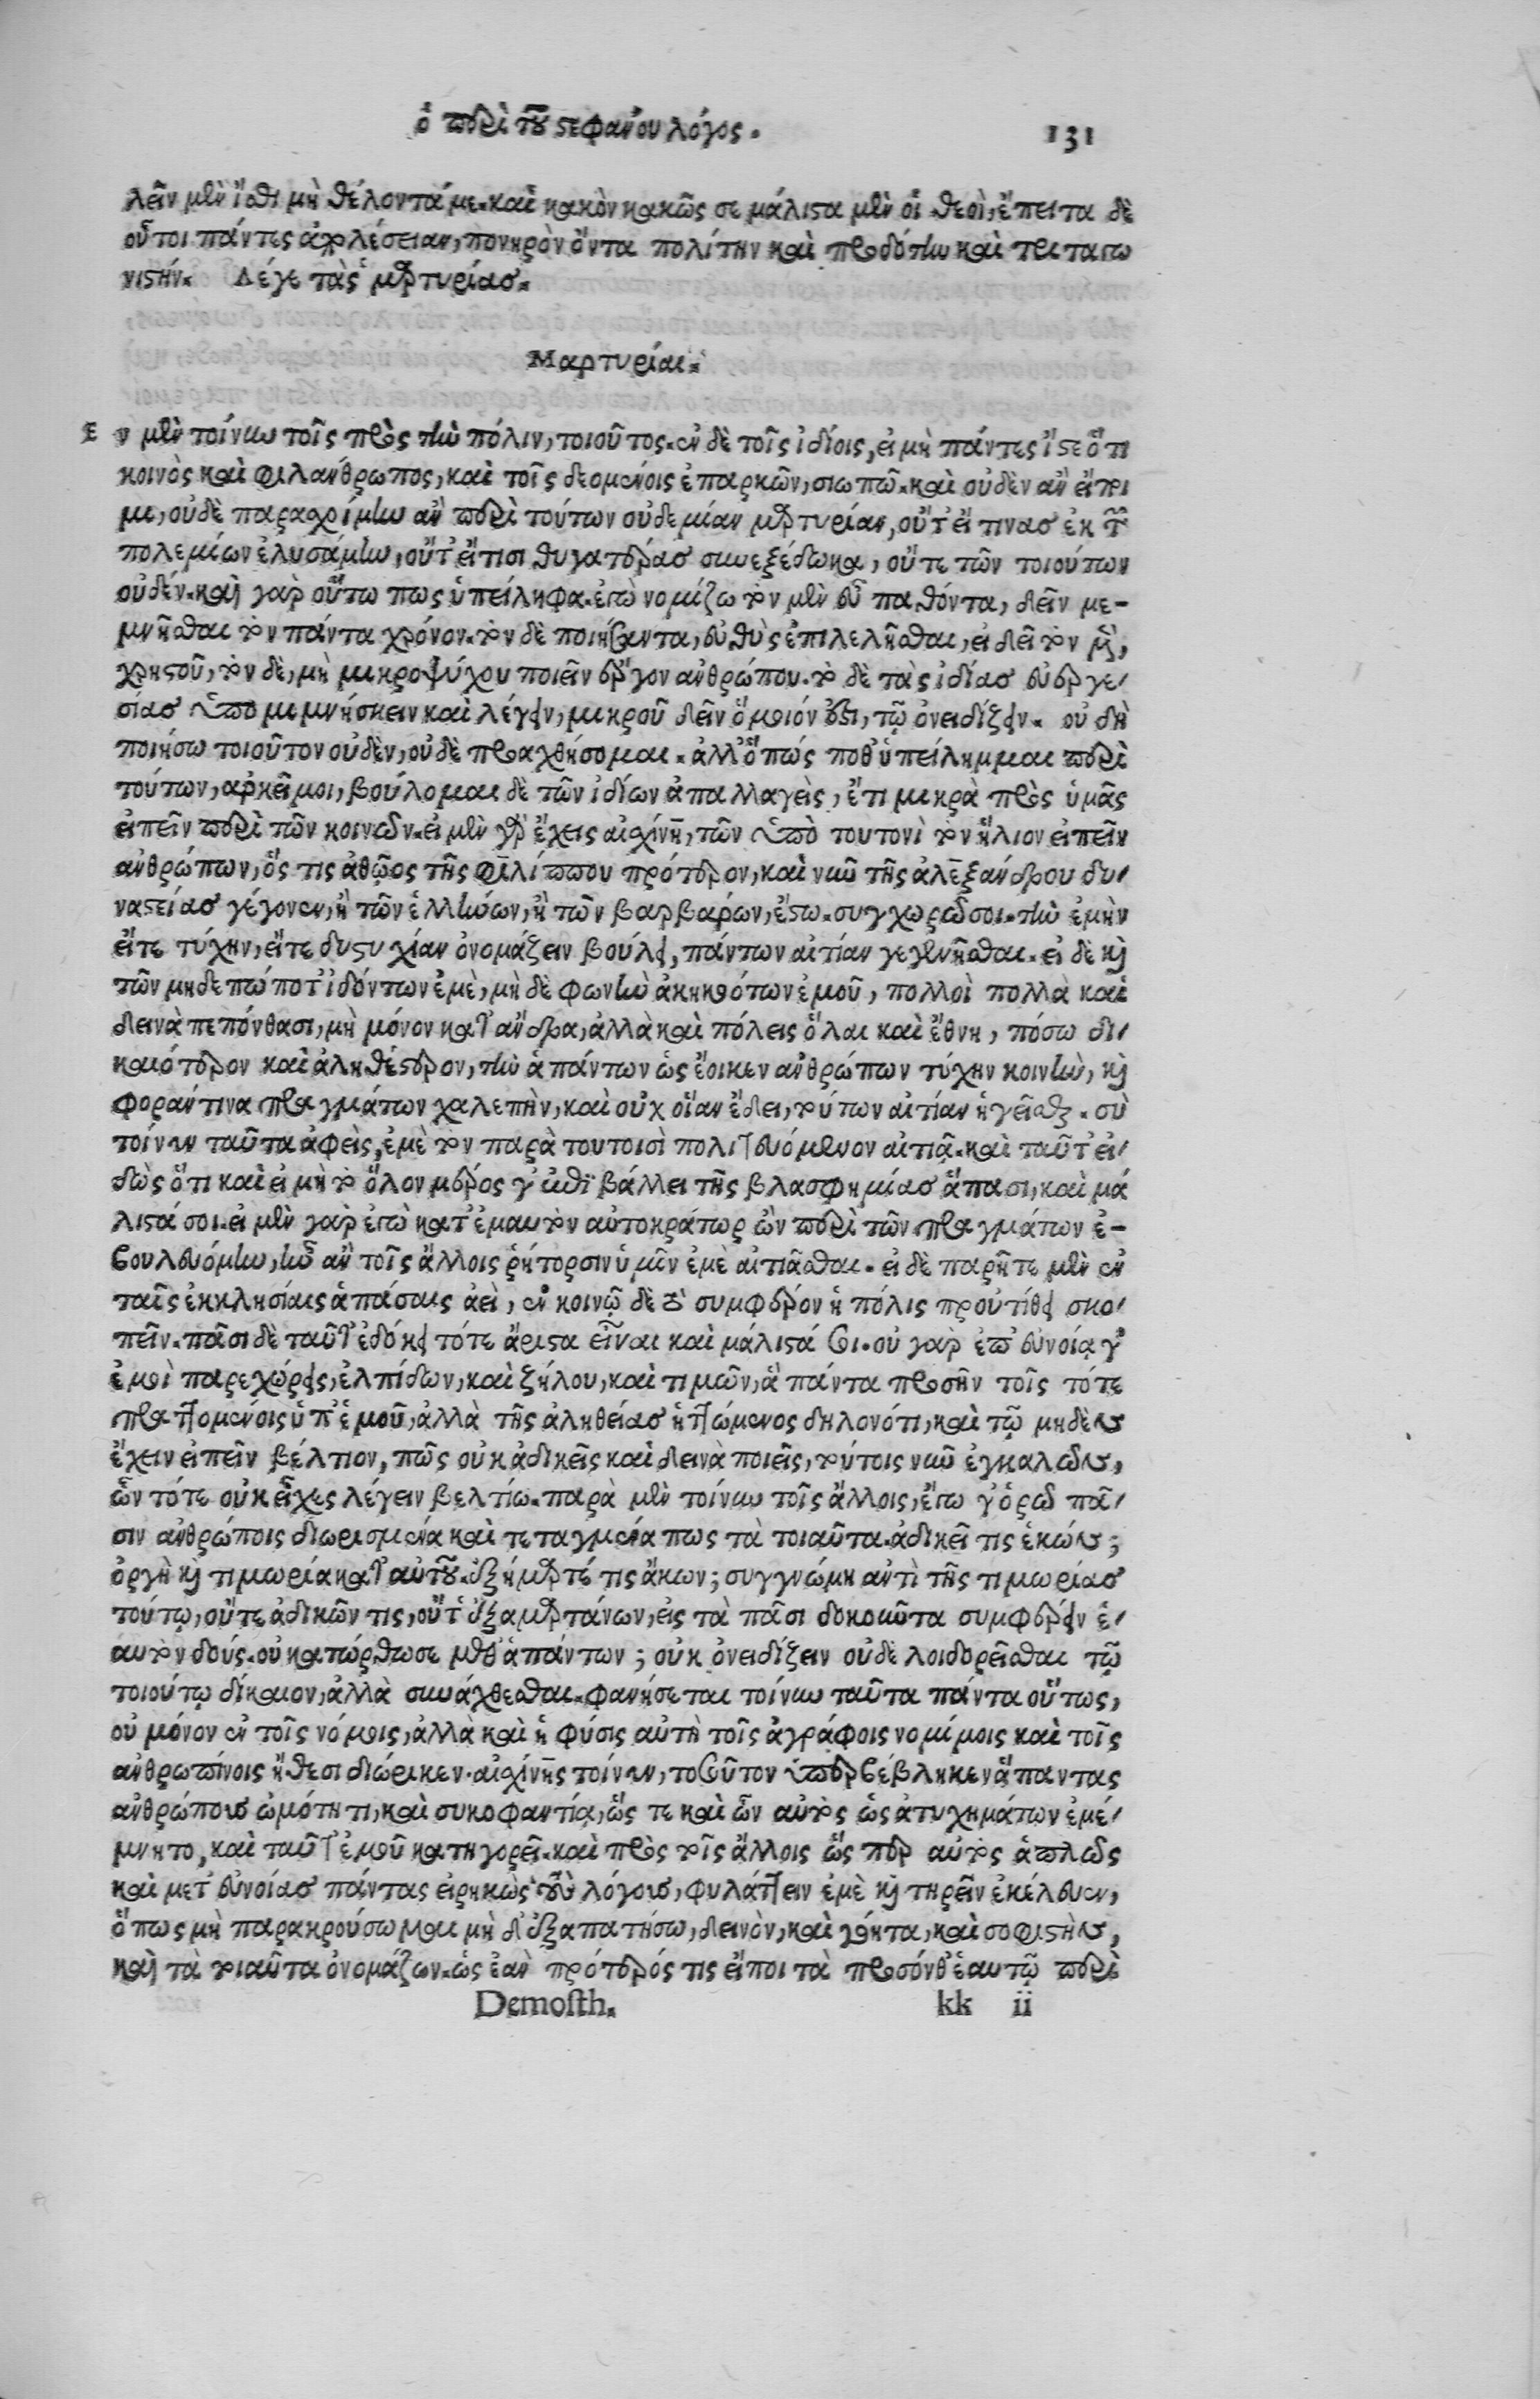 ὁ περὶ τοῦ στεφάνου λόγος. 131
λεῖν μὲν ἴσθι μὴ θέλοντά με. καὶ κακὸν κακῶς σε μάλιστα μὲν οἱ θεοὶ, ἔπειτα δὲ
οὗτοι πάντες ἀπολέσειαν, πονηρὸν ὄντα πολίτην καὶ προδότην καὶ τριταγω
νιστήν. Λέγε τὰς μαρτυρίας.
Μαρτυρίαι.
Ἐν μὲν τοίνυν τοῖς πρὸς τὴν πόλιν, τοιοῦτος. ἐν δὲ τοῖς ἰδίοις, εἰ μὴ πάντες ἴστε ὅτι
κοινὸς καὶ φιλάνθρωπος, καὶ τοῖς δεομένοις ἐπαρκῶν, σιωπῶ. καὶ οὐδὲν ἂν εἴποι
με, οὐδὲ παρασχοίμην ἂν περὶ τούτων οὐδεμίαν μαρτυρίαν, οὔτ' εἴ τινας ἐκ τῶν
πολεμίων ἐλυσάμην, οὔτ' εἴ τισι θυγατέρας συνεξέδωκα, οὔτε τῶν τοιούτων
οὐδέν. καὶ γὰρ οὕτω πως ὑπείληφα. ἐγὼ νομίζω τὸν μὲν εὖ παθόντα, δεῖν με-
μνῆσθαι τὸν πάντα χρόνον. τὸν δὲ ποιήσαντα, εὐθὺς ἐπιλελῆσθαι, εἰ δεῖ τὸν μὲν,
χρηστοῦ, τὸν δὲ, μὴ μικροψύχου ποιεῖν ἔργον ἀνθρώπου. τὸ δὲ τὰς ἰδίας εὐεργε
σίας ὑπομιμνήσκειν καὶ λέγειν, μικροῦ δεῖν ὅμοιόν ἐστι, τῷ ὀνειδίζειν. οὐ δὴ
ποιήσω τοιοῦτον οὐδὲν, οὐδὲ προαχθήσομαι. ἀλλ' ὅπως ποθ' ὑπείλημμαι περὶ
τούτων, ἀρκεῖ μοι, βούλομαι δὲ τῶν ἰδίων ἀπαλλαγεὶς, ἔτι μικρὰ πρὸς ὑμᾶς
εἰπεῖν περὶ τῶν κοινῶν. εἰ μὲν γὰρ ἔχεις αἰσχίνη, τῶν ὑπὸ τουτονὶ τὸν ἥλιον εἰπεῖν
ἀνθρώπων, ὅς τις ἀθῷος τῆς φιλίππου πρότερον, καὶ νῦν τῆς ἀλεξάνδρου δυ
ναστείας γέγονεν, ἢ τῶν ἑλλήνων, ἢ τῶν βαρβάρων, ἔστω. συγχωρῶ σοι. τὴν ἐμὴν
εἴτε τύχην, εἴτε δυστυχίαν ὀνομάζειν βούλει, πάντων αἰτίαν γεγενῆσθαι. εἰ δὲ καὶ
τῶν μηδεπώποτ' ἰδόντων ἐμὲ, μὴ δὲ φωνὴν ἀκηκοότων ἐμοῦ, πολλοὶ πολλὰ καὶ
δεινὰ πεπόνθασι, μὴ μόνον κατ' ἄνδρα, ἀλλὰ καὶ πόλεις ὅλαι καὶ ἔθνη, πόσω δι
καιότερον καὶ ἀληθέστερον, τὴν ἁπάντων ὡς ἔοικεν ἀνθρώπων τύχην κοινὴν, καὶ
φοράν τινα πραγμάτων χαλεπὴν, καὶ οὐχ οἵαν ἔδει, τούτων αἰτίαν ἡγεῖσθαι. σὺ
τοίνυν ταῦτα ἀφεὶς, ἐμὲ τὸν παρὰ τουτοισὶ πολιτευόμενον αἰτιᾷ. καὶ ταῦτ' εἰ
δὼς ὅτι καὶ εἰ μὴ τὸ ὅλον μέρος γ' ἐπιβάλλει τῆς βλασφημίας ἅπασι, καὶ μά
λιστά σοι. εἰ μὲν γὰρ ἐγὼ κατ' ἐμαυτὸν αὐτοκράτωρ ὢν περὶ τῶν πραγμάτων ἐ-
βουλευόμην, ἦν ἂν τοῖς ἄλλοις ῥήτορσιν ὑμῖν ἐμὲ αἰτιᾶσθαι. εἰ δὲ παρῆτε μὲν ἐν
ταῖς ἐκκλησίαις ἁπάσαις ἀεὶ, ἐν κοινῷ δὲ τὸ συμφέρον ἡ πόλις προὐτίθει σκο
πεῖν. πᾶσι δὲ ταῦτ' ἐδόκει τότε ἄριστα εἶναι καὶ μάλιστά σοι. οὐ γὰρ ἐπ' εὐνοίᾳ γ'
ἐμοὶ παρεχώρεις, ἐλπίδων, καὶ ζήλου, καὶ τιμῶν, ἃ πάντα προσῆν τοῖς τότε
πραττομένοις ὑπ' ἐμοῦ, ἀλλὰ τῆς ἀληθείας ἡττώμενος δηλονότι, καὶ τῷ μηδὲν
ἔχειν εἰπεῖν βέλτιον, πῶς οὐκ ἀδικεῖς καὶ δεινὰ ποιεῖς, τούτοις νῦν ἐγκαλῶν,
ὧν τότε οὐκ εἶχες λέγειν βελτίω. παρὰ μὲν τοίνυν τοῖς ἄλλοις, ἔγω γ' ὁρῶ πᾶ
σιν ἀνθρώποις διωρισμένα καὶ τεταγμένα πως τὰ τοιαῦτα. ἀδικεῖ τις ἑκών;
ὀργὴ καὶ τιμωρία κατ' αὐτοῦ. ἐξήμαρτέ τις ἄκων; συγγνώμη ἀντὶ τῆς τιμωρίας
τούτῳ, οὔτε ἀδικῶν τις, οὔτ' ἐξαμαρτάνων, εἰς τὰ πᾶσι δοκοῦντα συμφέρειν ἑ
αυτὸν δούς. οὐ κατώρθωσε μεθ' ἁπάντων; οὐκ ὀνειδίζειν οὐδὲ λοιδορεῖσθαι τῷ
τοιούτῳ δίκαιον, ἀλλὰ συνάχθεσθαι. φανήσεται τοίνυν ταῦτα πάντα οὕτως,
οὐ μόνον ἐν τοῖς νόμοις, ἀλλὰ καὶ ἡ φύσις αὐτὴ τοῖς ἀγράφοις νομίμοις καὶ τοῖς
ἀνθρωπίνοις ἤθεσι διώρικεν. αἰσχίνης τοίνυν, τοσοῦτον ὑπερβέβληκεν ἅπαντας
ἀνθρώπους ὠμότητι, καὶ συκοφαντίᾳ, ὥς τε καὶ ὧν αὐτὸς ὡς ἀτυχημάτων ἐμέ
μνητο, καὶ ταῦτ' ἐμοῦ κατηγορεῖ. καὶ πρὸς τοῖς ἄλλοις ὥς περ αὐτὸς ἁπλῶς
καὶ μετ' εὐνοίας πάντας εἰρηκὼς τοὺς λόγους, φυλάττειν ἐμὲ καὶ τηρεῖν ἐκέλευεν,
ὅπως μὴ παρακρούσωμαι μὴ δ' ἐξαπατήσω, δεινὸν, καὶ γόητα, καὶ σοφιστὴν,
καὶ τὰ τοιαῦτα ὀνομάζων. ὡς ἐὰν πρότερός τις εἴποι τὰ προσόνθ' ἑαυτῷ περὶ
Demosth. kk ii